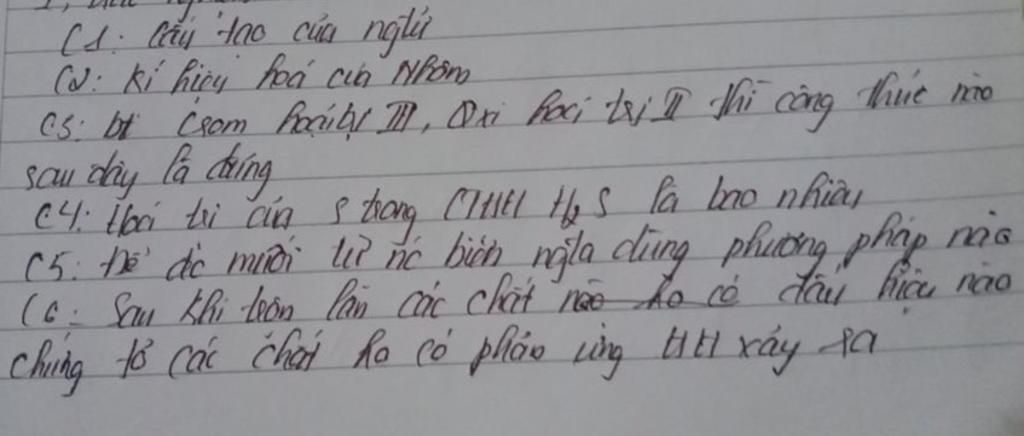 C1: Cấu tạo của ngtử
C2: Kí hiệu hoá của Nhôm
C3: bt Crom hoá trị III, Oxi hoá trị II thì công thức nào
sau đây là đúng
C4: Hoá trị của S trong CTHH H₂S là bao nhiêu
C5: Để đc muối từ nc biển ngta dùng phương pháp nào
C6: Sau khi trộn lẫn các chất nào ko có dấu hiệu nào
chứng tỏ các chất ko có phản ứng HH xảy ra